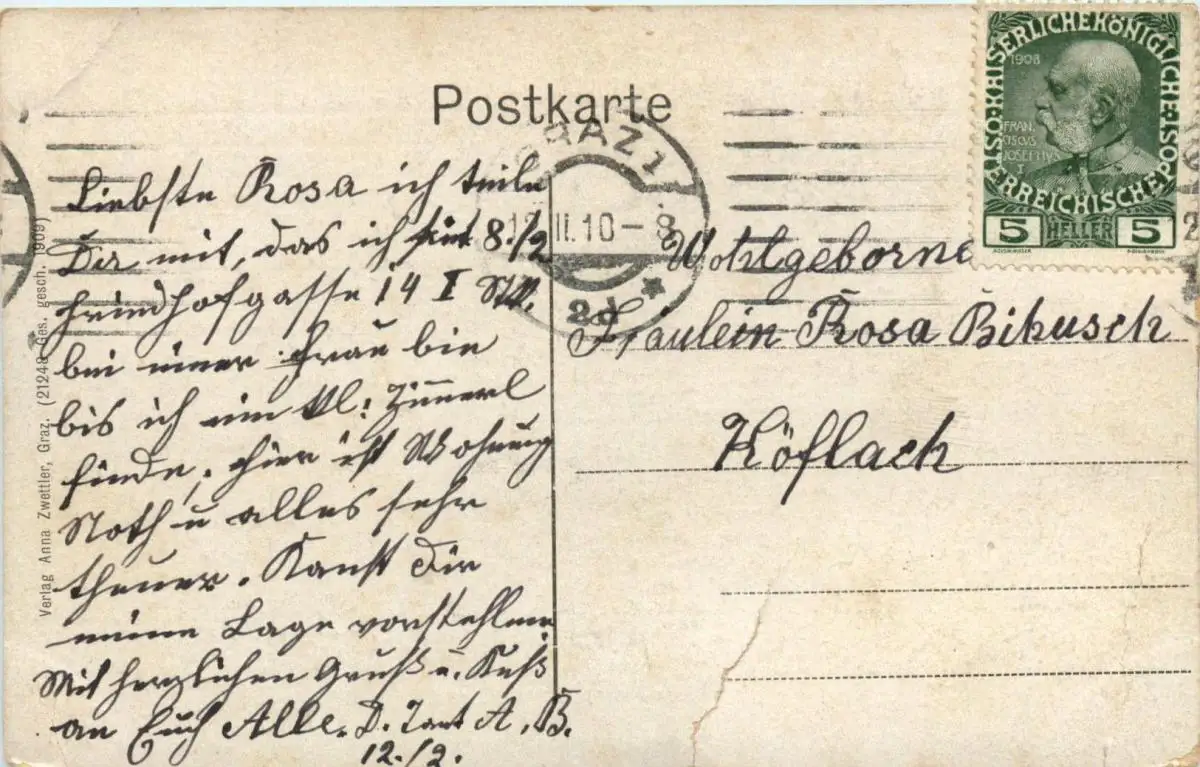 Postkarte
ÖSTERREICHISCHE POST KAISERLICHE KÖNIGLICHE
1908
FRAN
CISCVS
IOSEPHVS
5 HELLER 5
GRAZ 1
12. II. 10 - 8
2d
Liebste Rosa ich teile
Dir mit, das ich seit 8./2
Friedhofgasse 14 I Stk.
bei einer Frau bin
bis ich ein kl: Zimmerl
finde, hier ist Wohnung
Noth u alles sehr
theuer. Kanst Dir
meine Lage vorstehlen
Mit herzlichen Gruß u. Kuß
an Euch Alle. D. Tant A. B.
12./2.
Wohlgeborne
Fräulein Rosa Bikusch
Köflach
Verlag Anna Zwettler, Graz. (21248 Ges. gesch. 1909)